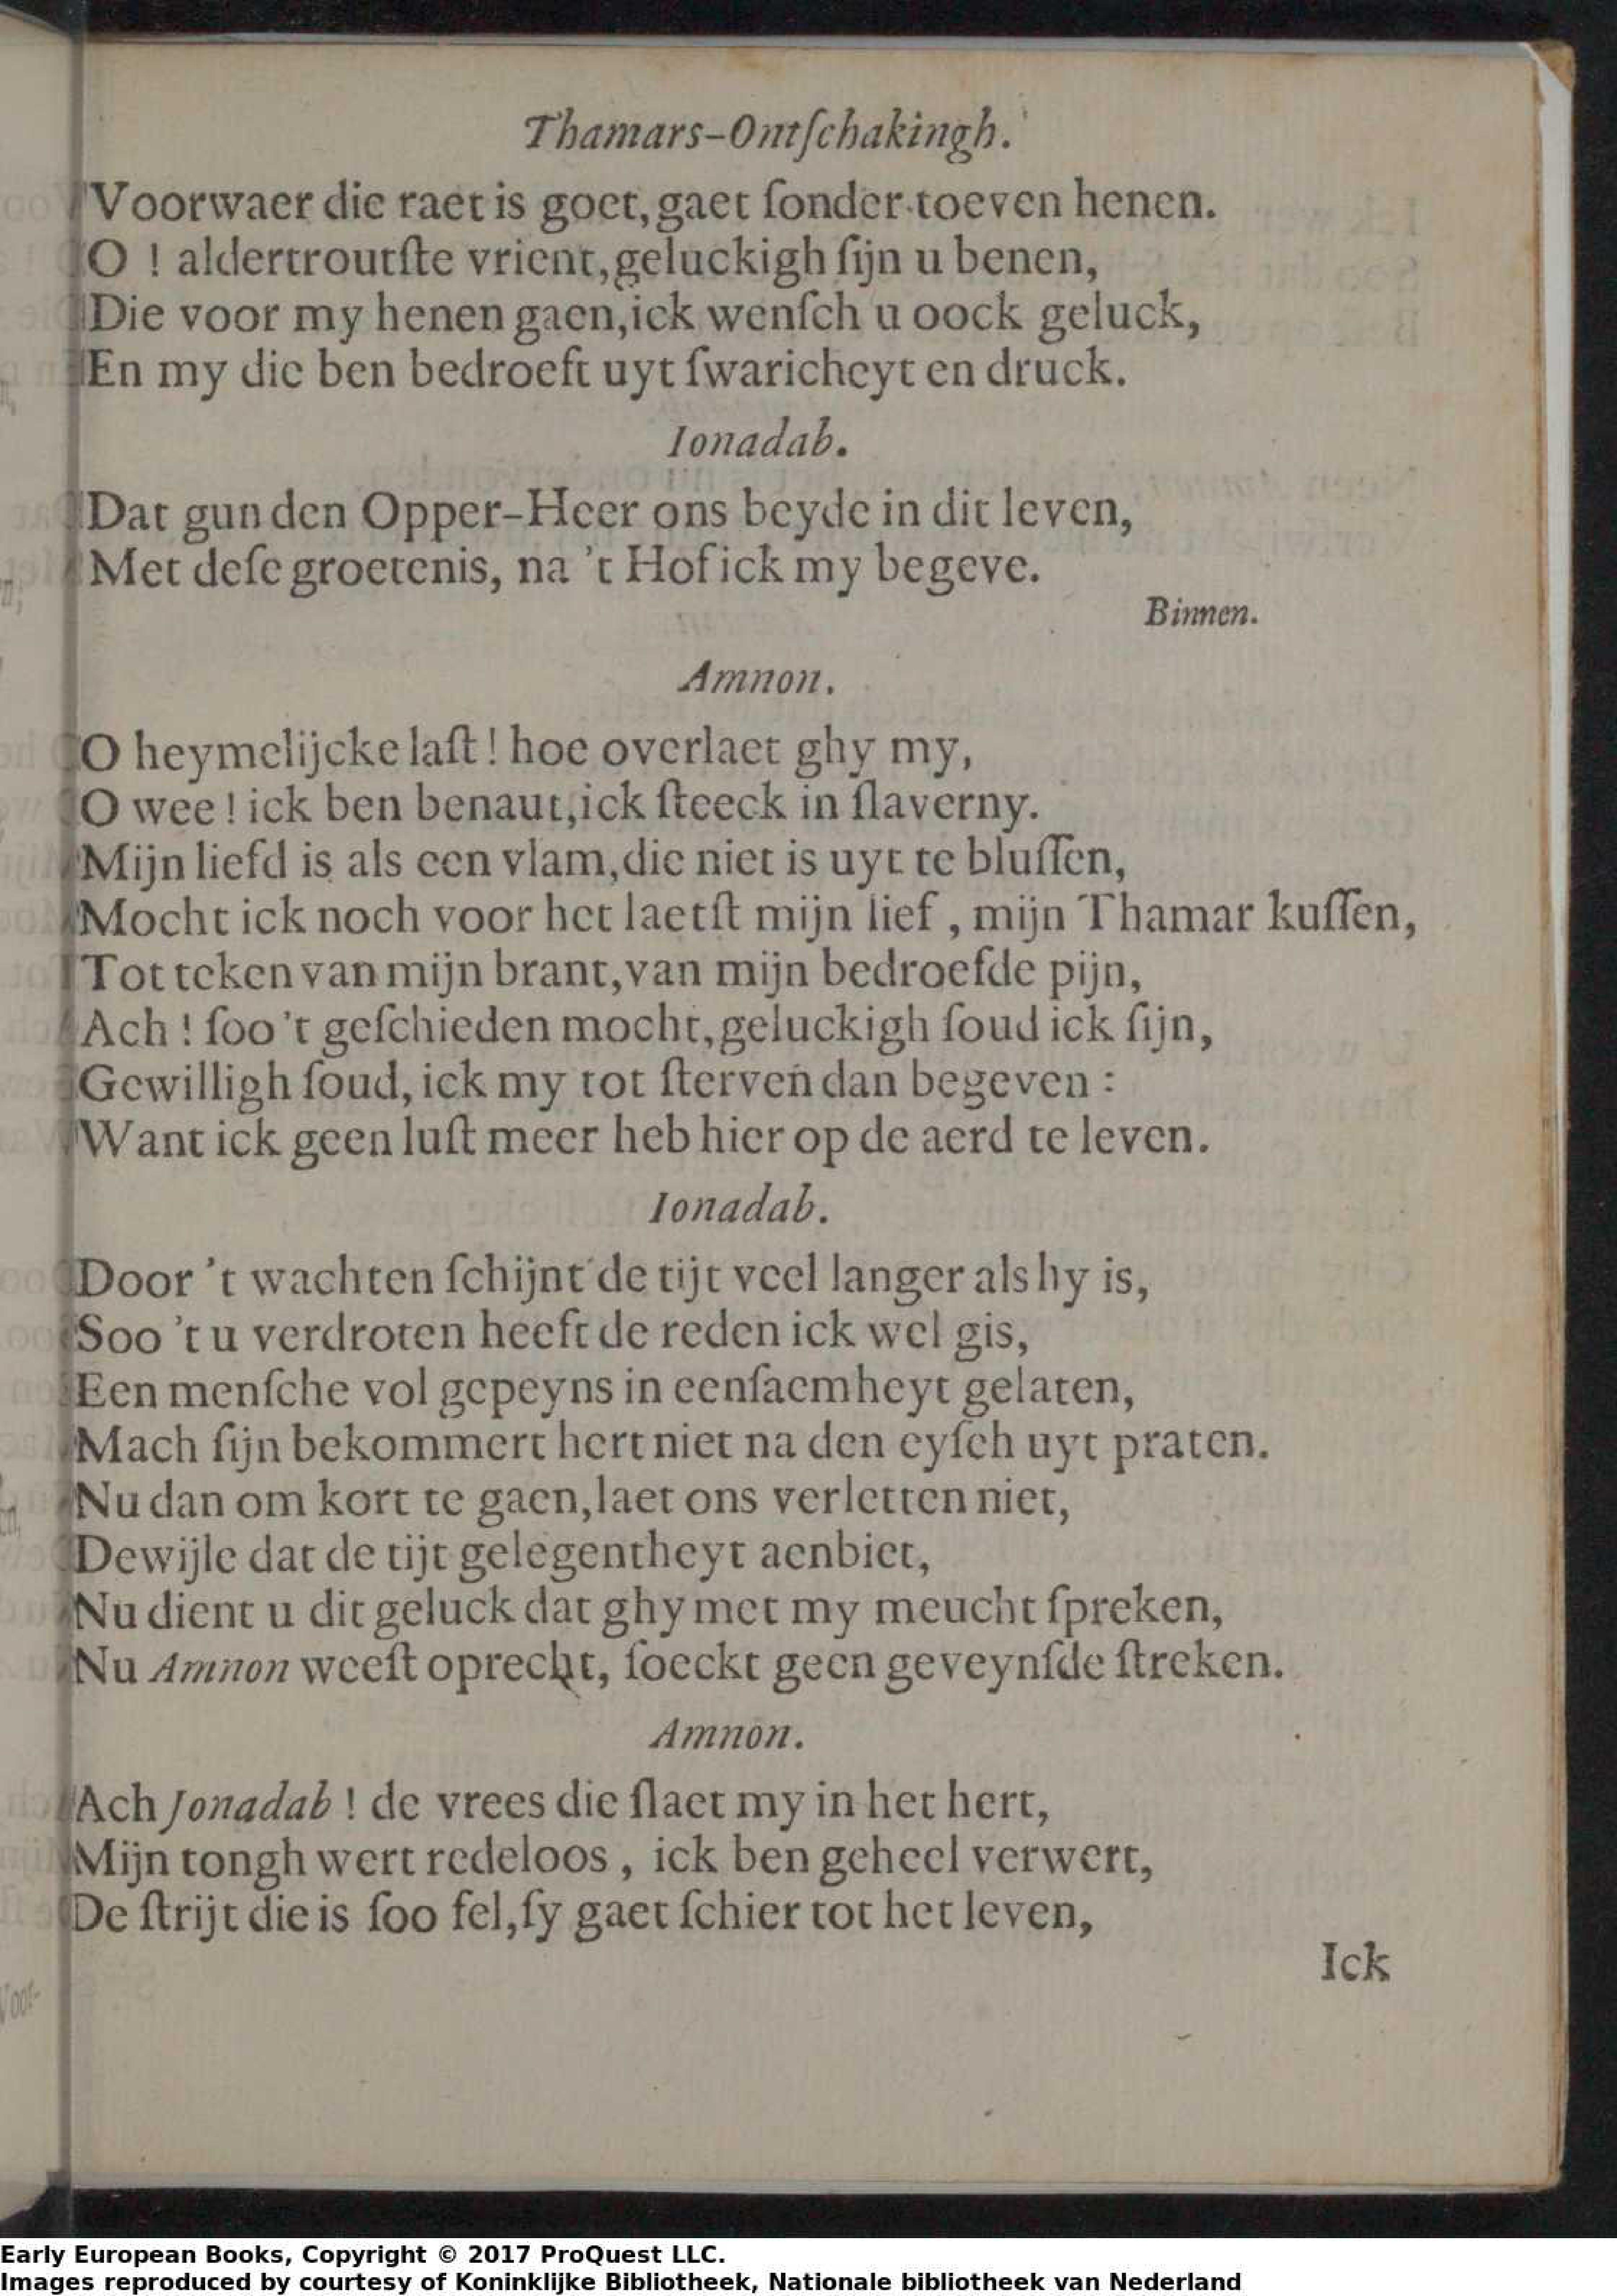 Thamars-Ontſchakingh.
Voorwaer die raet is goet, gaet ſonder toeven henen.
O ! aldertroutſte vrient, geluckigh ſijn u benen,
Die voor my henen gaen, ick wenſch u oock geluck,
En my die ben bedroeft uyt ſwaricheyt en druck.
Ionadab.
Dat gun den Opper-Heer ons beyde in dit leven,
Met deſe groetenis, na 't Hof ick my begeve.
Binnen.
Amnon.
O heymelijcke laſt ! hoe overlaet ghy my,
O wee ! ick ben benaut, ick ſteeck in ſlaverny.
Mijn liefd is als een vlam, die niet is uyt te bluſſen,
Mocht ick noch voor het laetſt mijn lief, mijn Thamar kuſſen,
Tot teken van mijn brant, van mijn bedroefde pijn,
Ach ! ſoo 't geſchieden mocht, geluckigh ſoud ick ſijn,
Gewilligh ſoud, ick my tot ſterven dan begeven :
Want ick geen luſt meer heb hier op de aerd te leven.
Ionadab.
Door 't wachten ſchijnt de tijt veel langer als hy is,
Soo 't u verdroten heeft de reden ick wel gis,
Een menſche vol gepeyns in eenſaemheyt gelaten,
Mach ſijn bekommert hert niet na den eyſch uyt praten.
Nu dan om kort te gaen, laet ons verletten niet,
Dewijle dat de tijt gelegentheyt aenbiet,
Nu dient u dit geluck dat ghy met my meucht ſpreken,
Nu Amnon weeſt oprecht, ſoeckt geen geveynſde ſtreken.
Amnon.
Ach Jonadab ! de vrees die ſlaet my in het hert,
Mijn tongh wert redeloos, ick ben geheel verwert,
De ſtrijt die is ſoo fel, ſy gaet ſchier tot het leven,
Ick
Voor-
Early European Books, Copyright © 2017 ProQuest LLC.
Images reproduced by courtesy of Koninklijke Bibliotheek, Nationale bibliotheek van Nederland